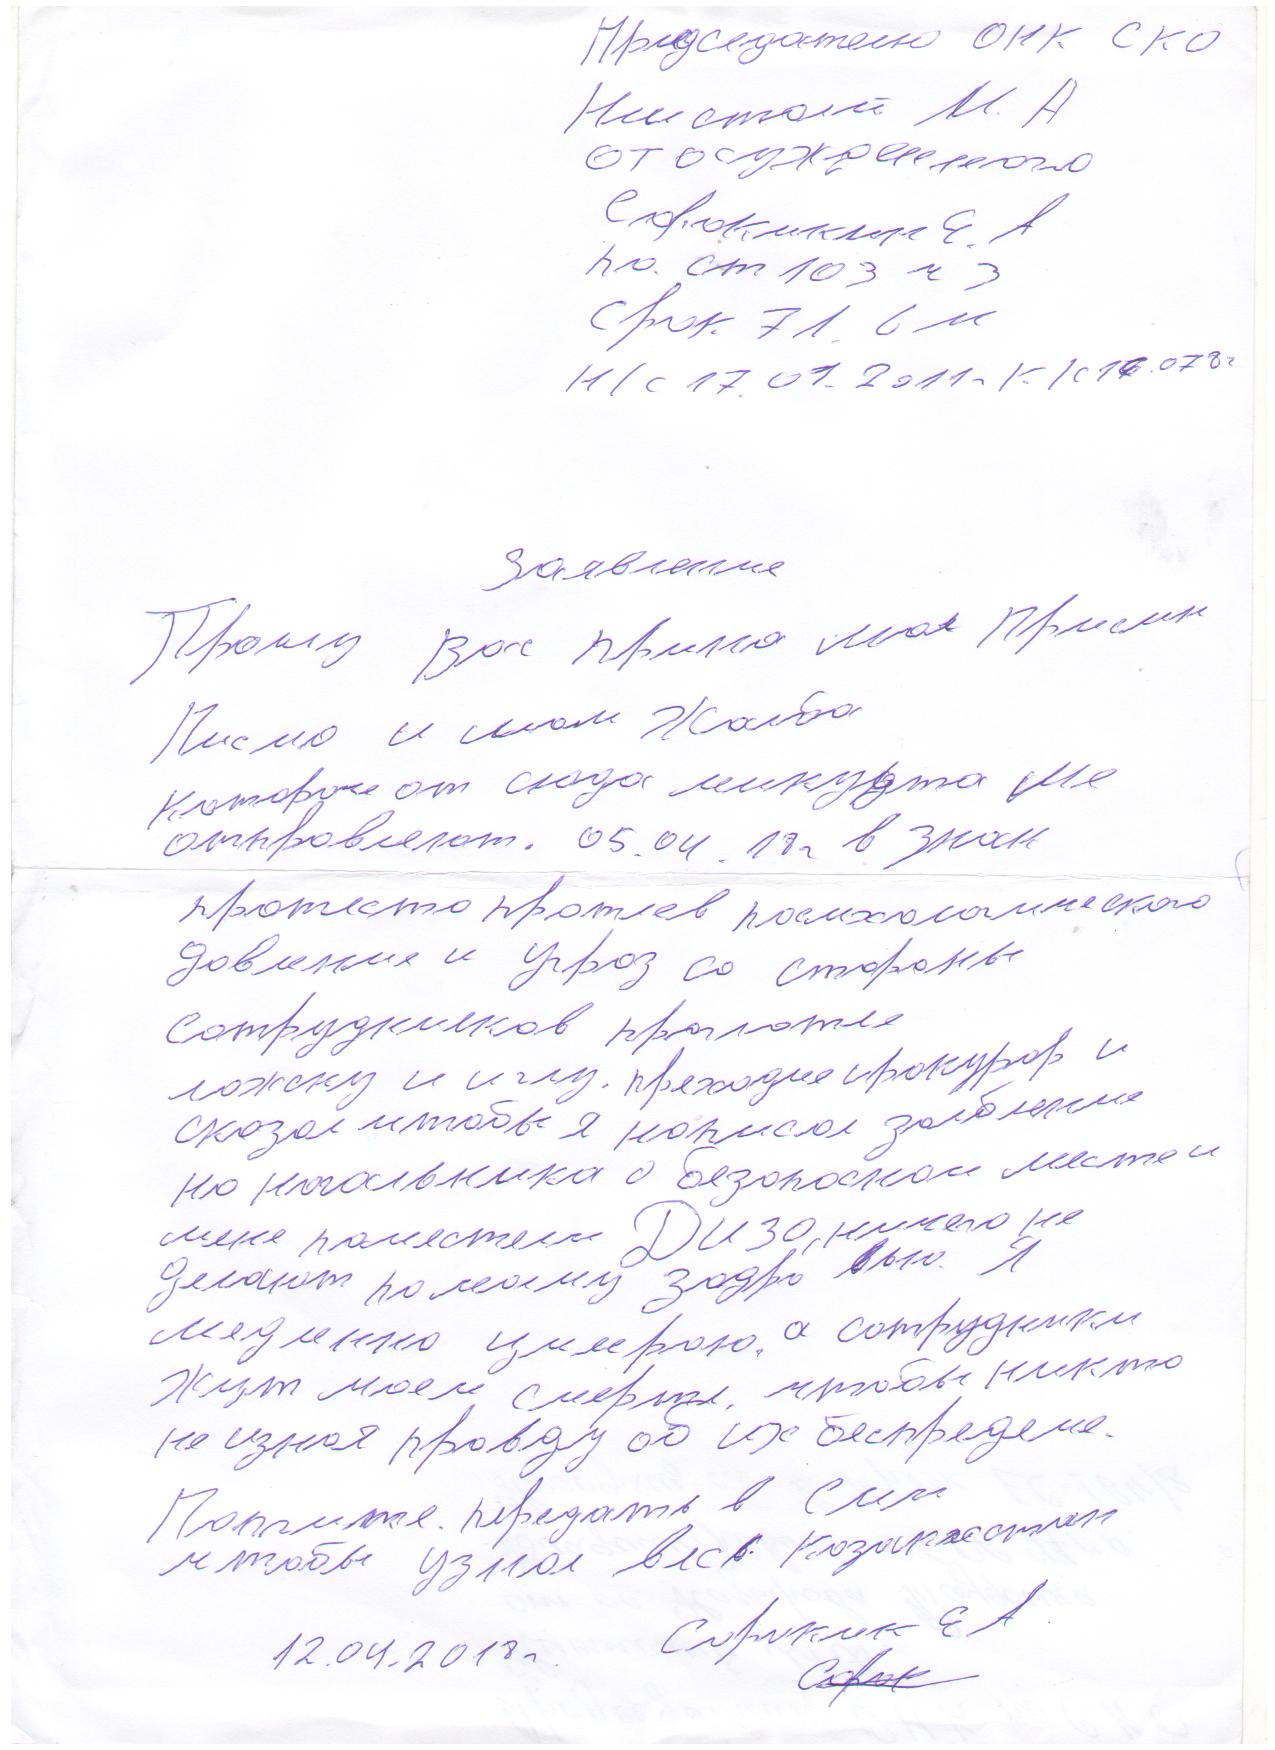 Председателю ОНК СКО
М. А
от осужденного
Сорокикин Е. А
по. ст 103 ч 3
срок. 7 л. 6 м
Н/с 17.01.2011г К/с
Заявление
Прошу вас мая
Писмо и Жалба
которые от сюда никудта не
отправлеют. 05.04.18г в знак
протеста протев псмхологического
довление и угроз со стороны
сотрудников праглотле
ложку и иглу. прокурор и
сказал чтобы я написал
но начальника о безопасном месте и
мене поместели ДИЗО, ничего не
делают по моему здаро вью. Я
медленно умераю, а сотрудники
Ждут моей смерти, чтобы никто
не узнал правду об их беспределе.
передать в Сми
чтобы узнал весь Козакхстан
12.04.2018г. Сорокик Е А
Сорок